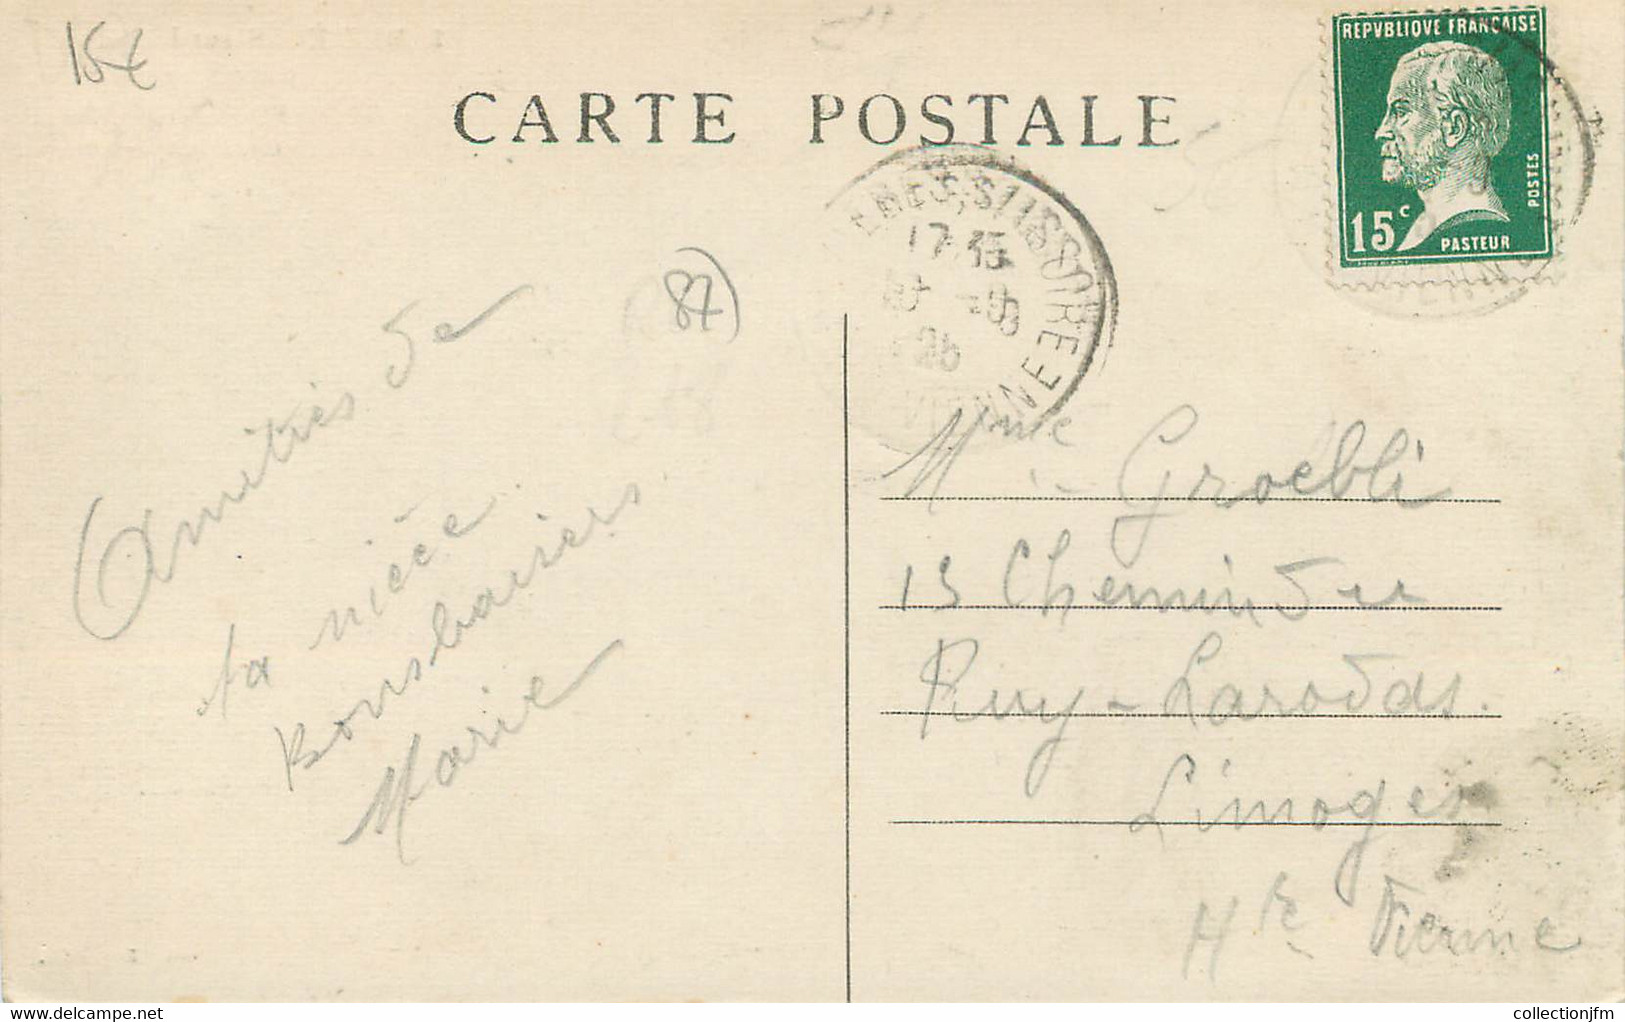 15€
CARTE POSTALE
REPVBLIQVE FRANÇAISE
POSTES
15c
PASTEUR
17 15
VIENNE
(87)
Amitiés de
ta nièce
Bons baisers
Marie
Mme Groebli
13 Chemin du
Puy-Larodas.
Limoges
Hte Vienne
delcampe.net
collectionjfm